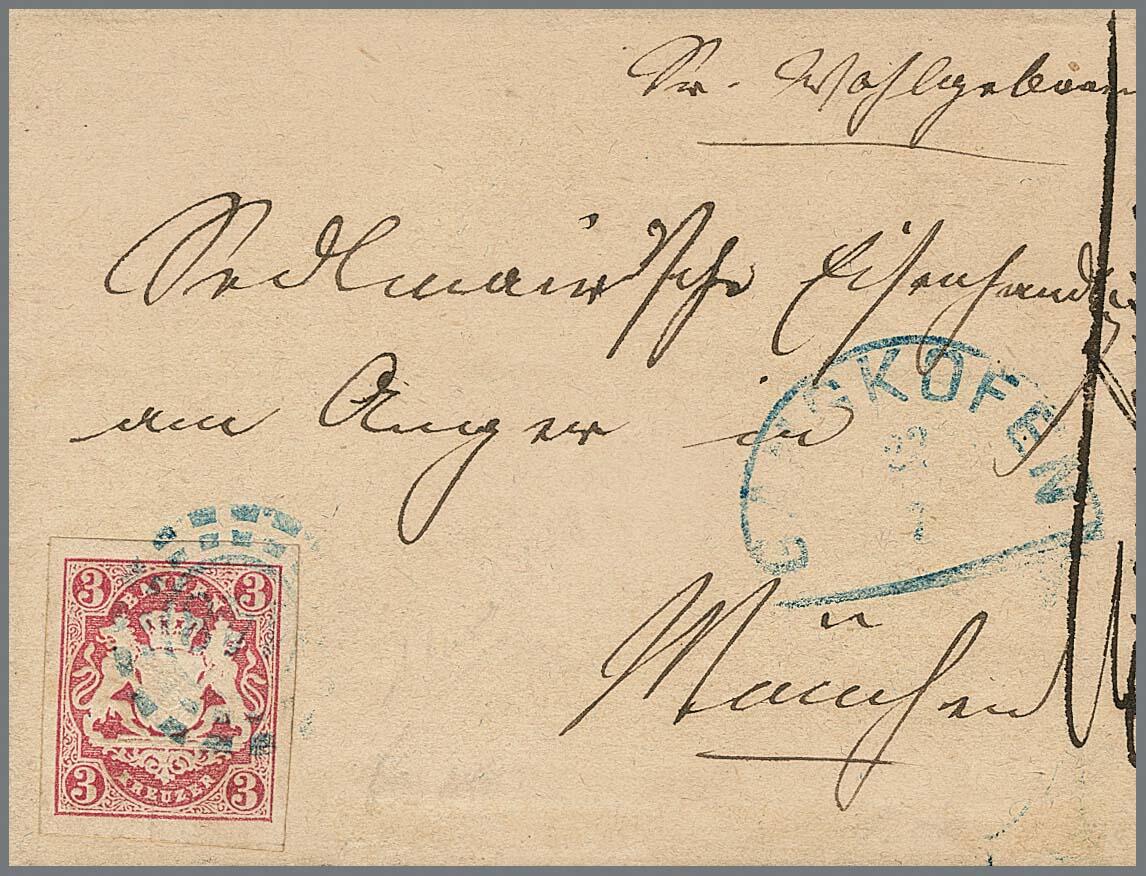 Sr. Wohlgeboren
Sedlmair'sche Eisenhandlg
am Anger in
München
GANGKOFEN
22
7
3 3
BAYERN
KREUZER
3 3